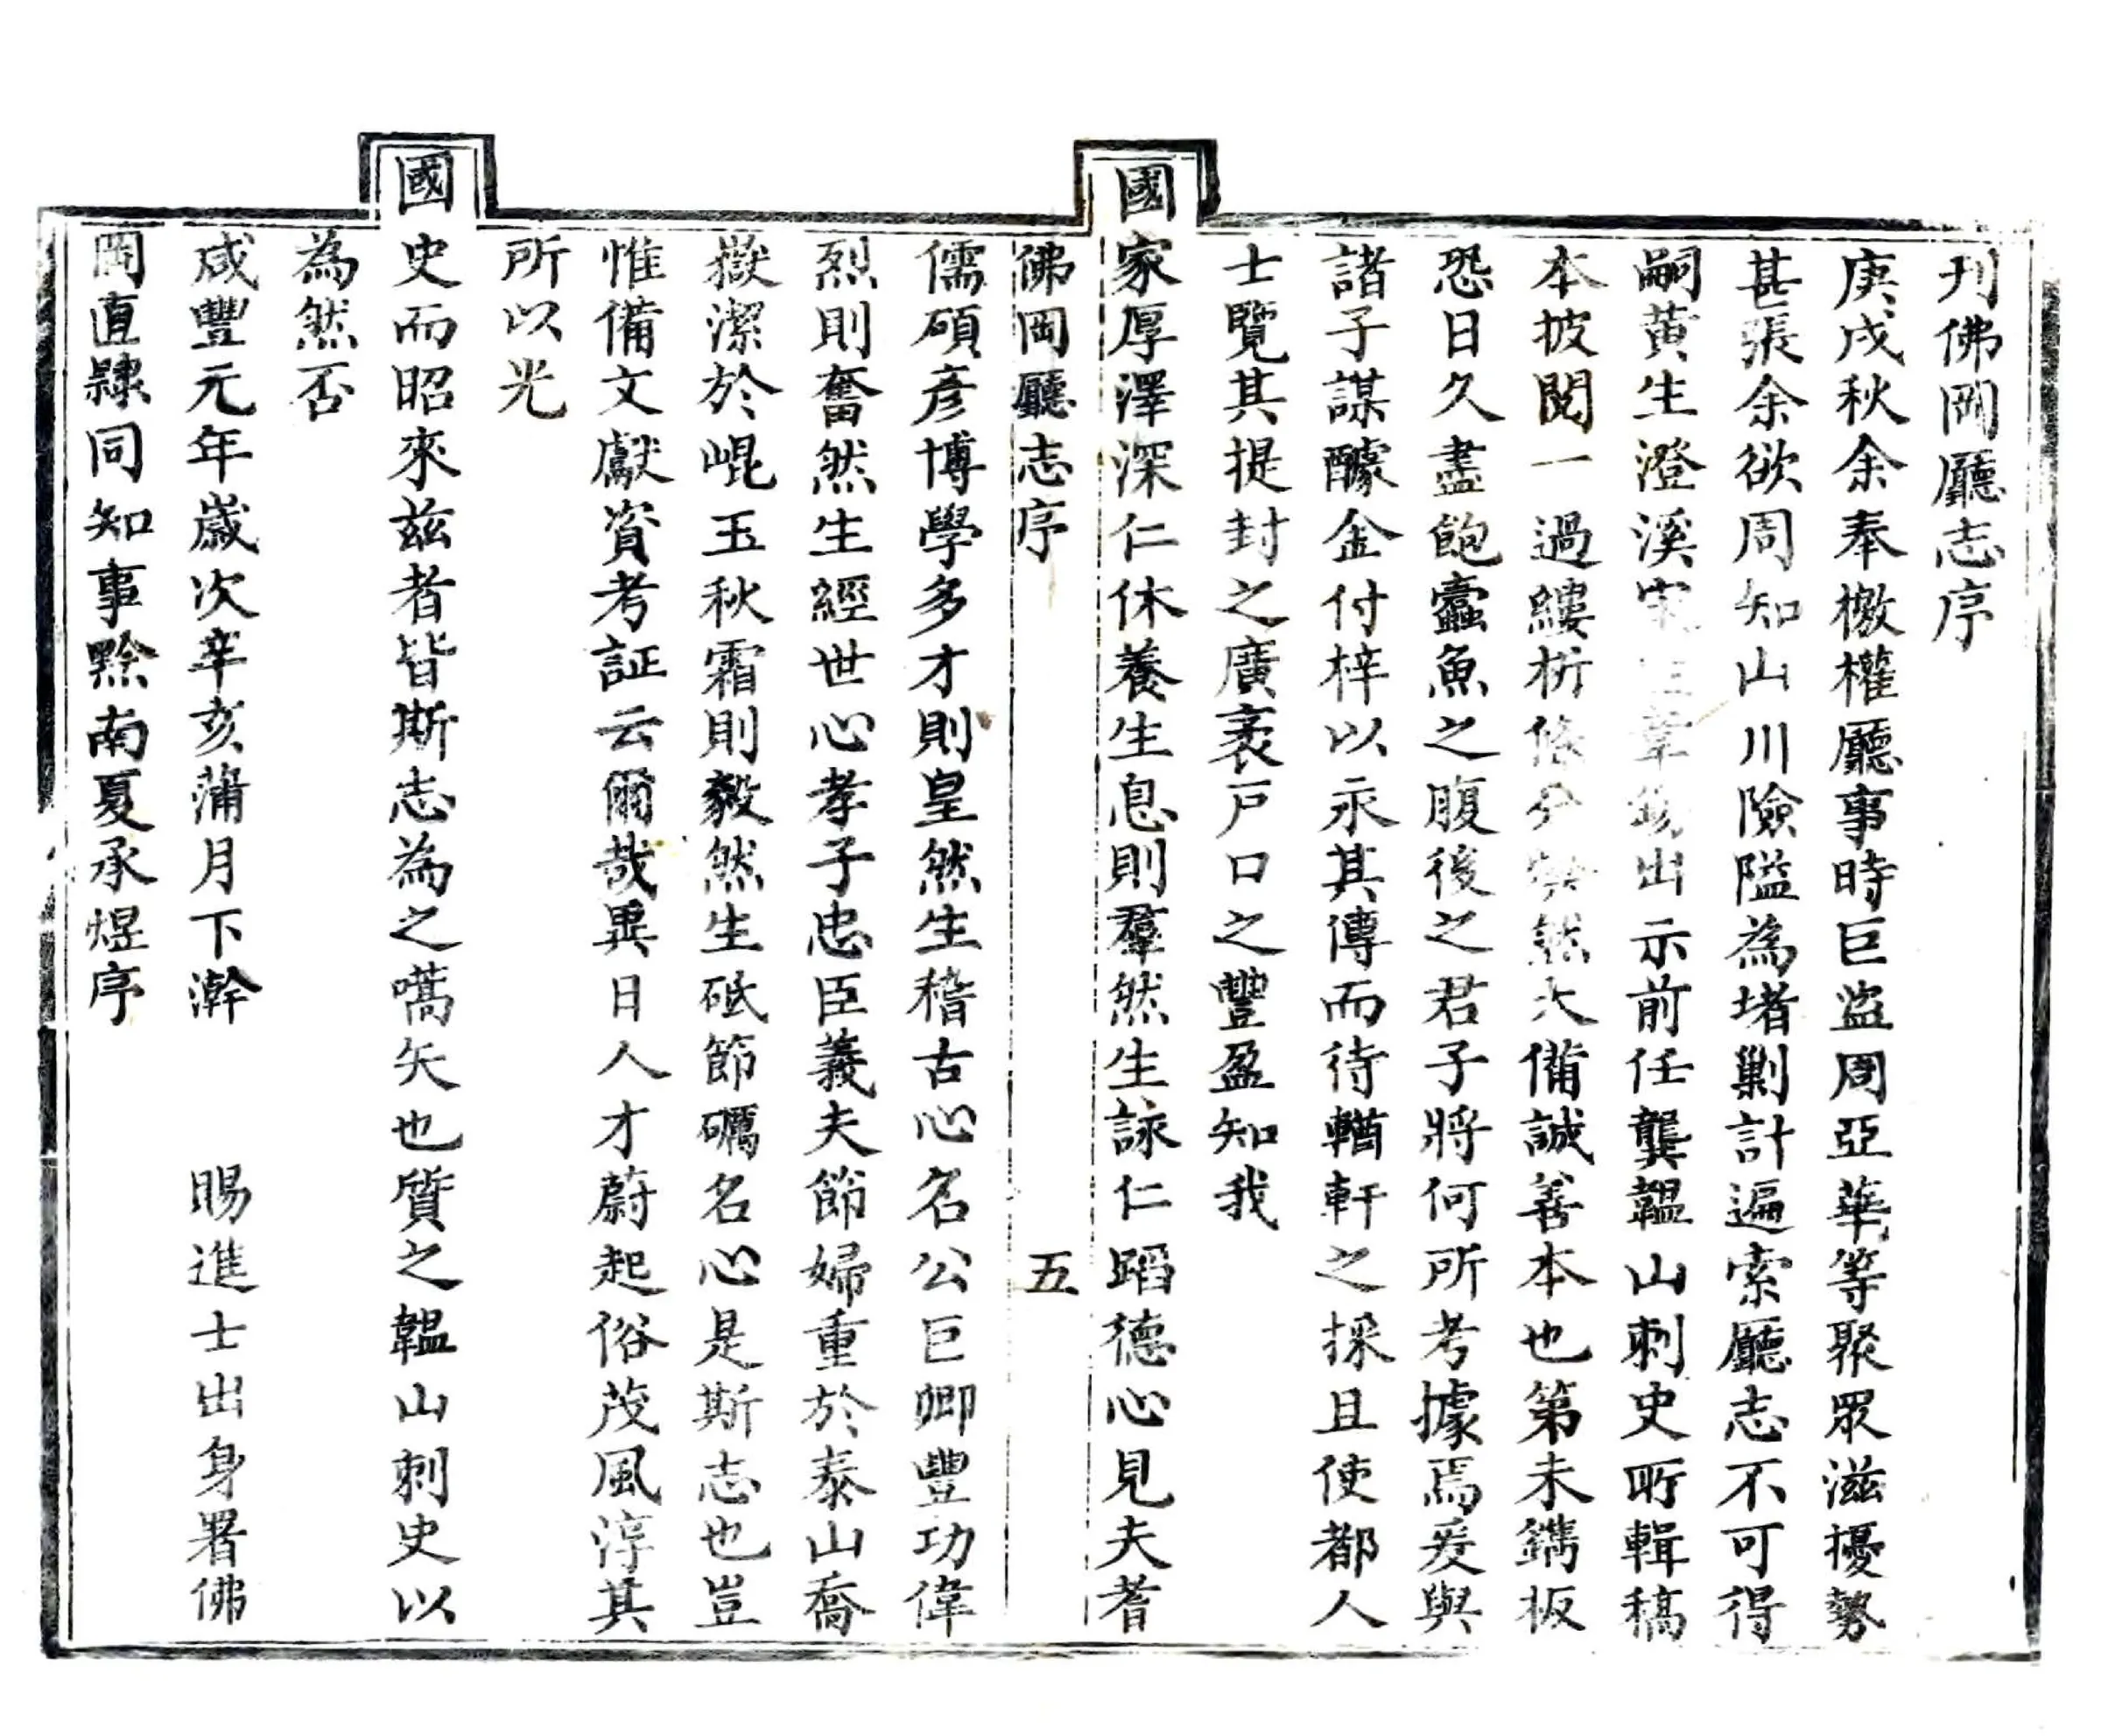 刋佛岡廳志序
庚戌秋余奉檄權廳事時巨盜周亞華等聚眾滋擾勢
甚張余欲周知山川險隘為堵剿計遍索廳志不可得
嗣黃生澄溪出示前任龔韞山刺史所輯稿
本披閱一過縷析條分然大備誠善本也第未鐫板
恐日久盡飽蠹魚之腹後之君子將何所考據焉爰與
諸子謀醵金付梓以永其傳而待輶軒之採且使都人
士覽其提封之廣袤戶口之豐盈知我
國家厚澤深仁休養生息則羣然生詠仁蹈德心見夫耆
佛岡廳志序 五
儒碩彥博學多才則皇然生稽古心名公巨卿豐功偉
烈則奮然生經世心孝子忠臣義夫節婦重於泰山喬
嶽潔於崐玉秋霜則毅然生砥節礪名心是斯志也豈
惟備文獻資考証云爾哉異日人才蔚起俗茂風淳其
所以光
國史而昭來茲者皆斯志為之嚆矢也質之韞山刺史以
為然否
咸豐元年歲次辛亥蒲月下澣 賜進士出身署佛
岡直隸同知事黟南夏承煜序